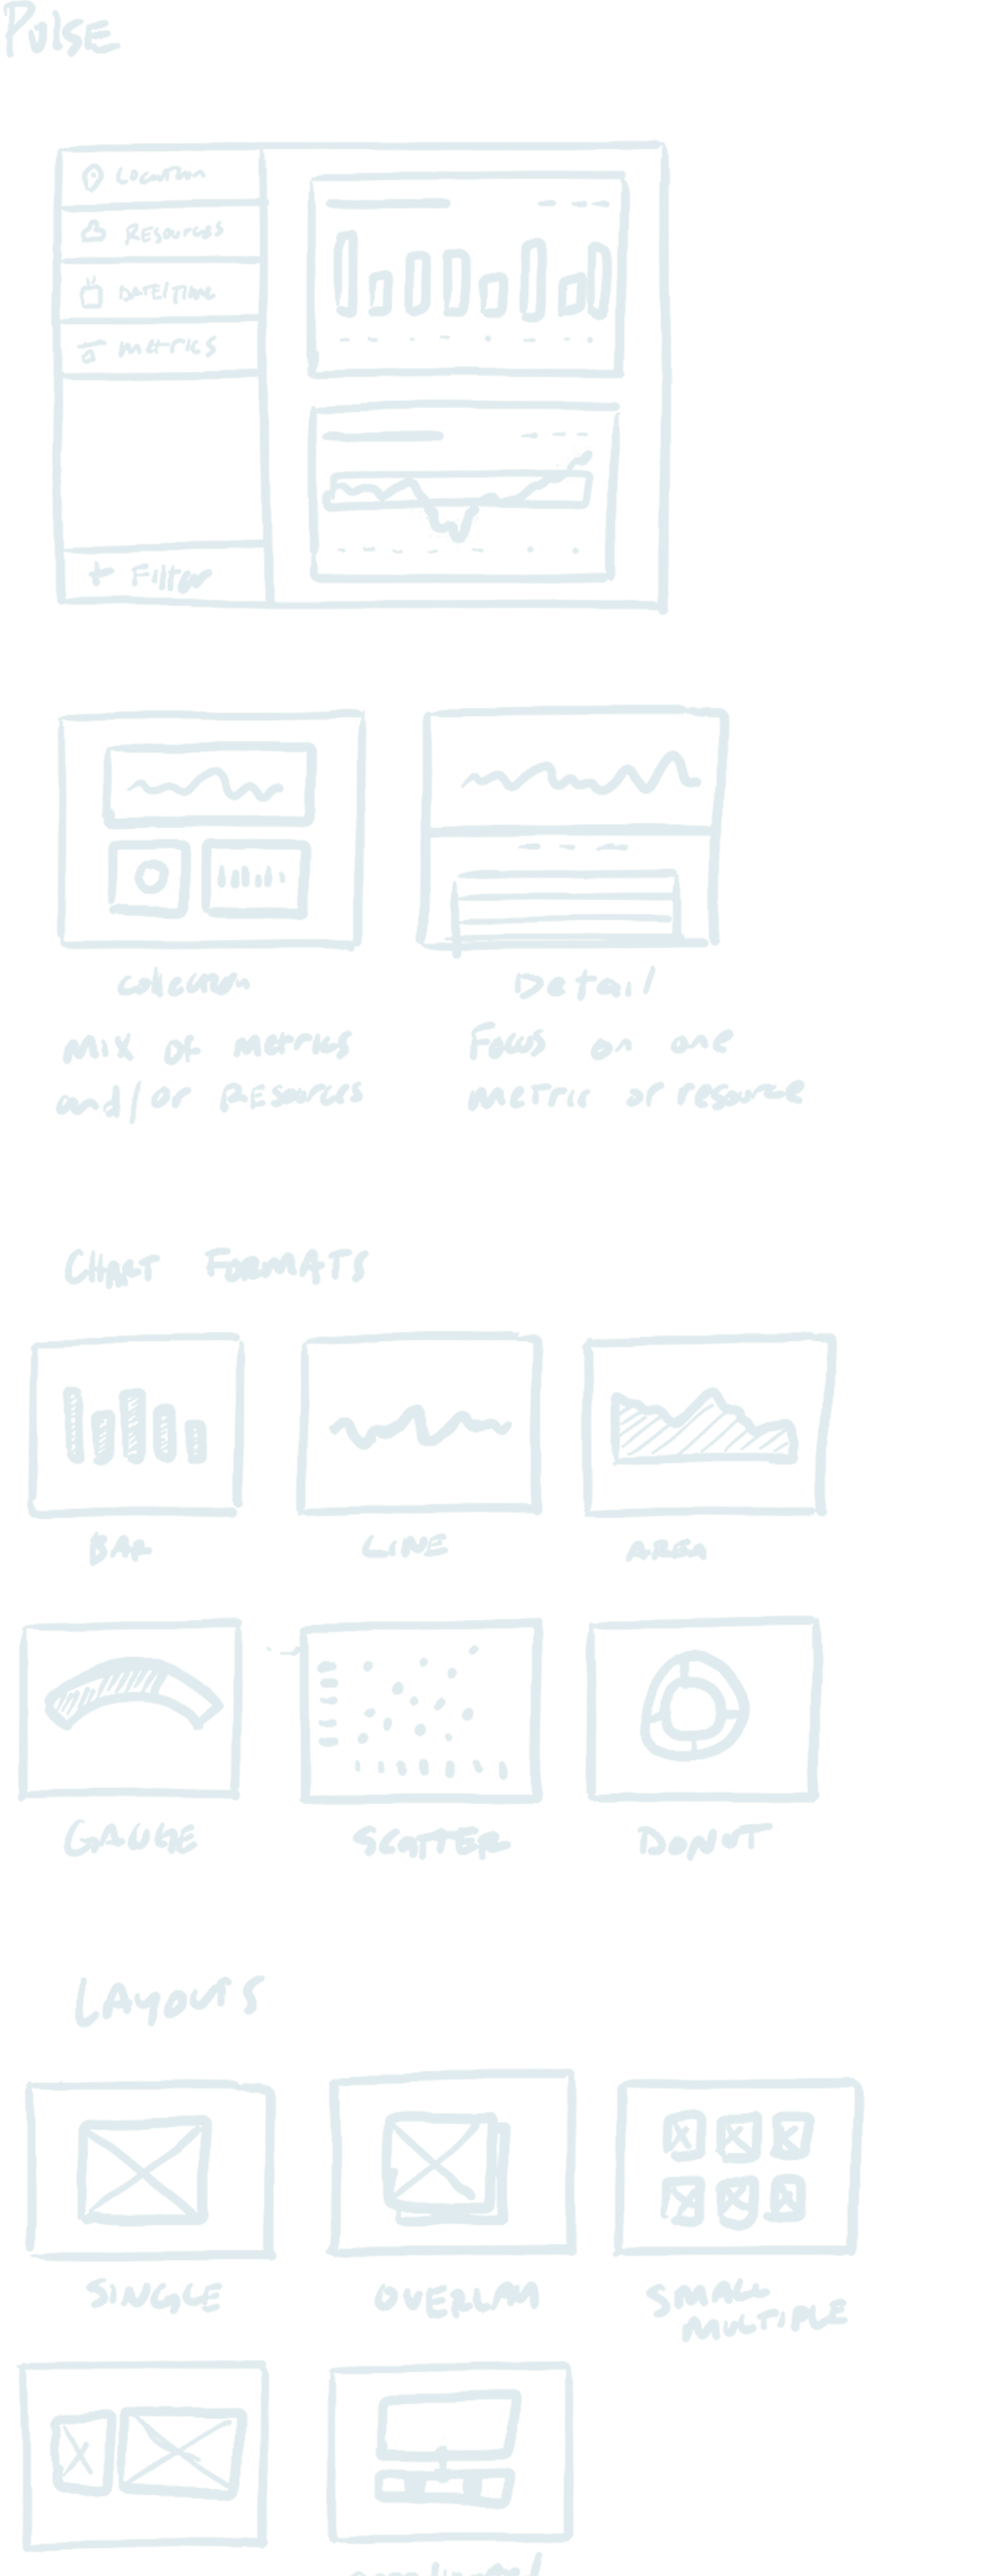 Pulse
Location
Resources
Date/Time
Metrics
+ Filter
Collection
Detail
Mix of metrics
and/or Resources
Focus on one
metric or resource
CHART FORMATS
BAR
LINE
AREA
GAUGE
SCATTER
DONUT
LAYOUTS
SINGLE
OVERLAY
SMALL
MULTIPLE